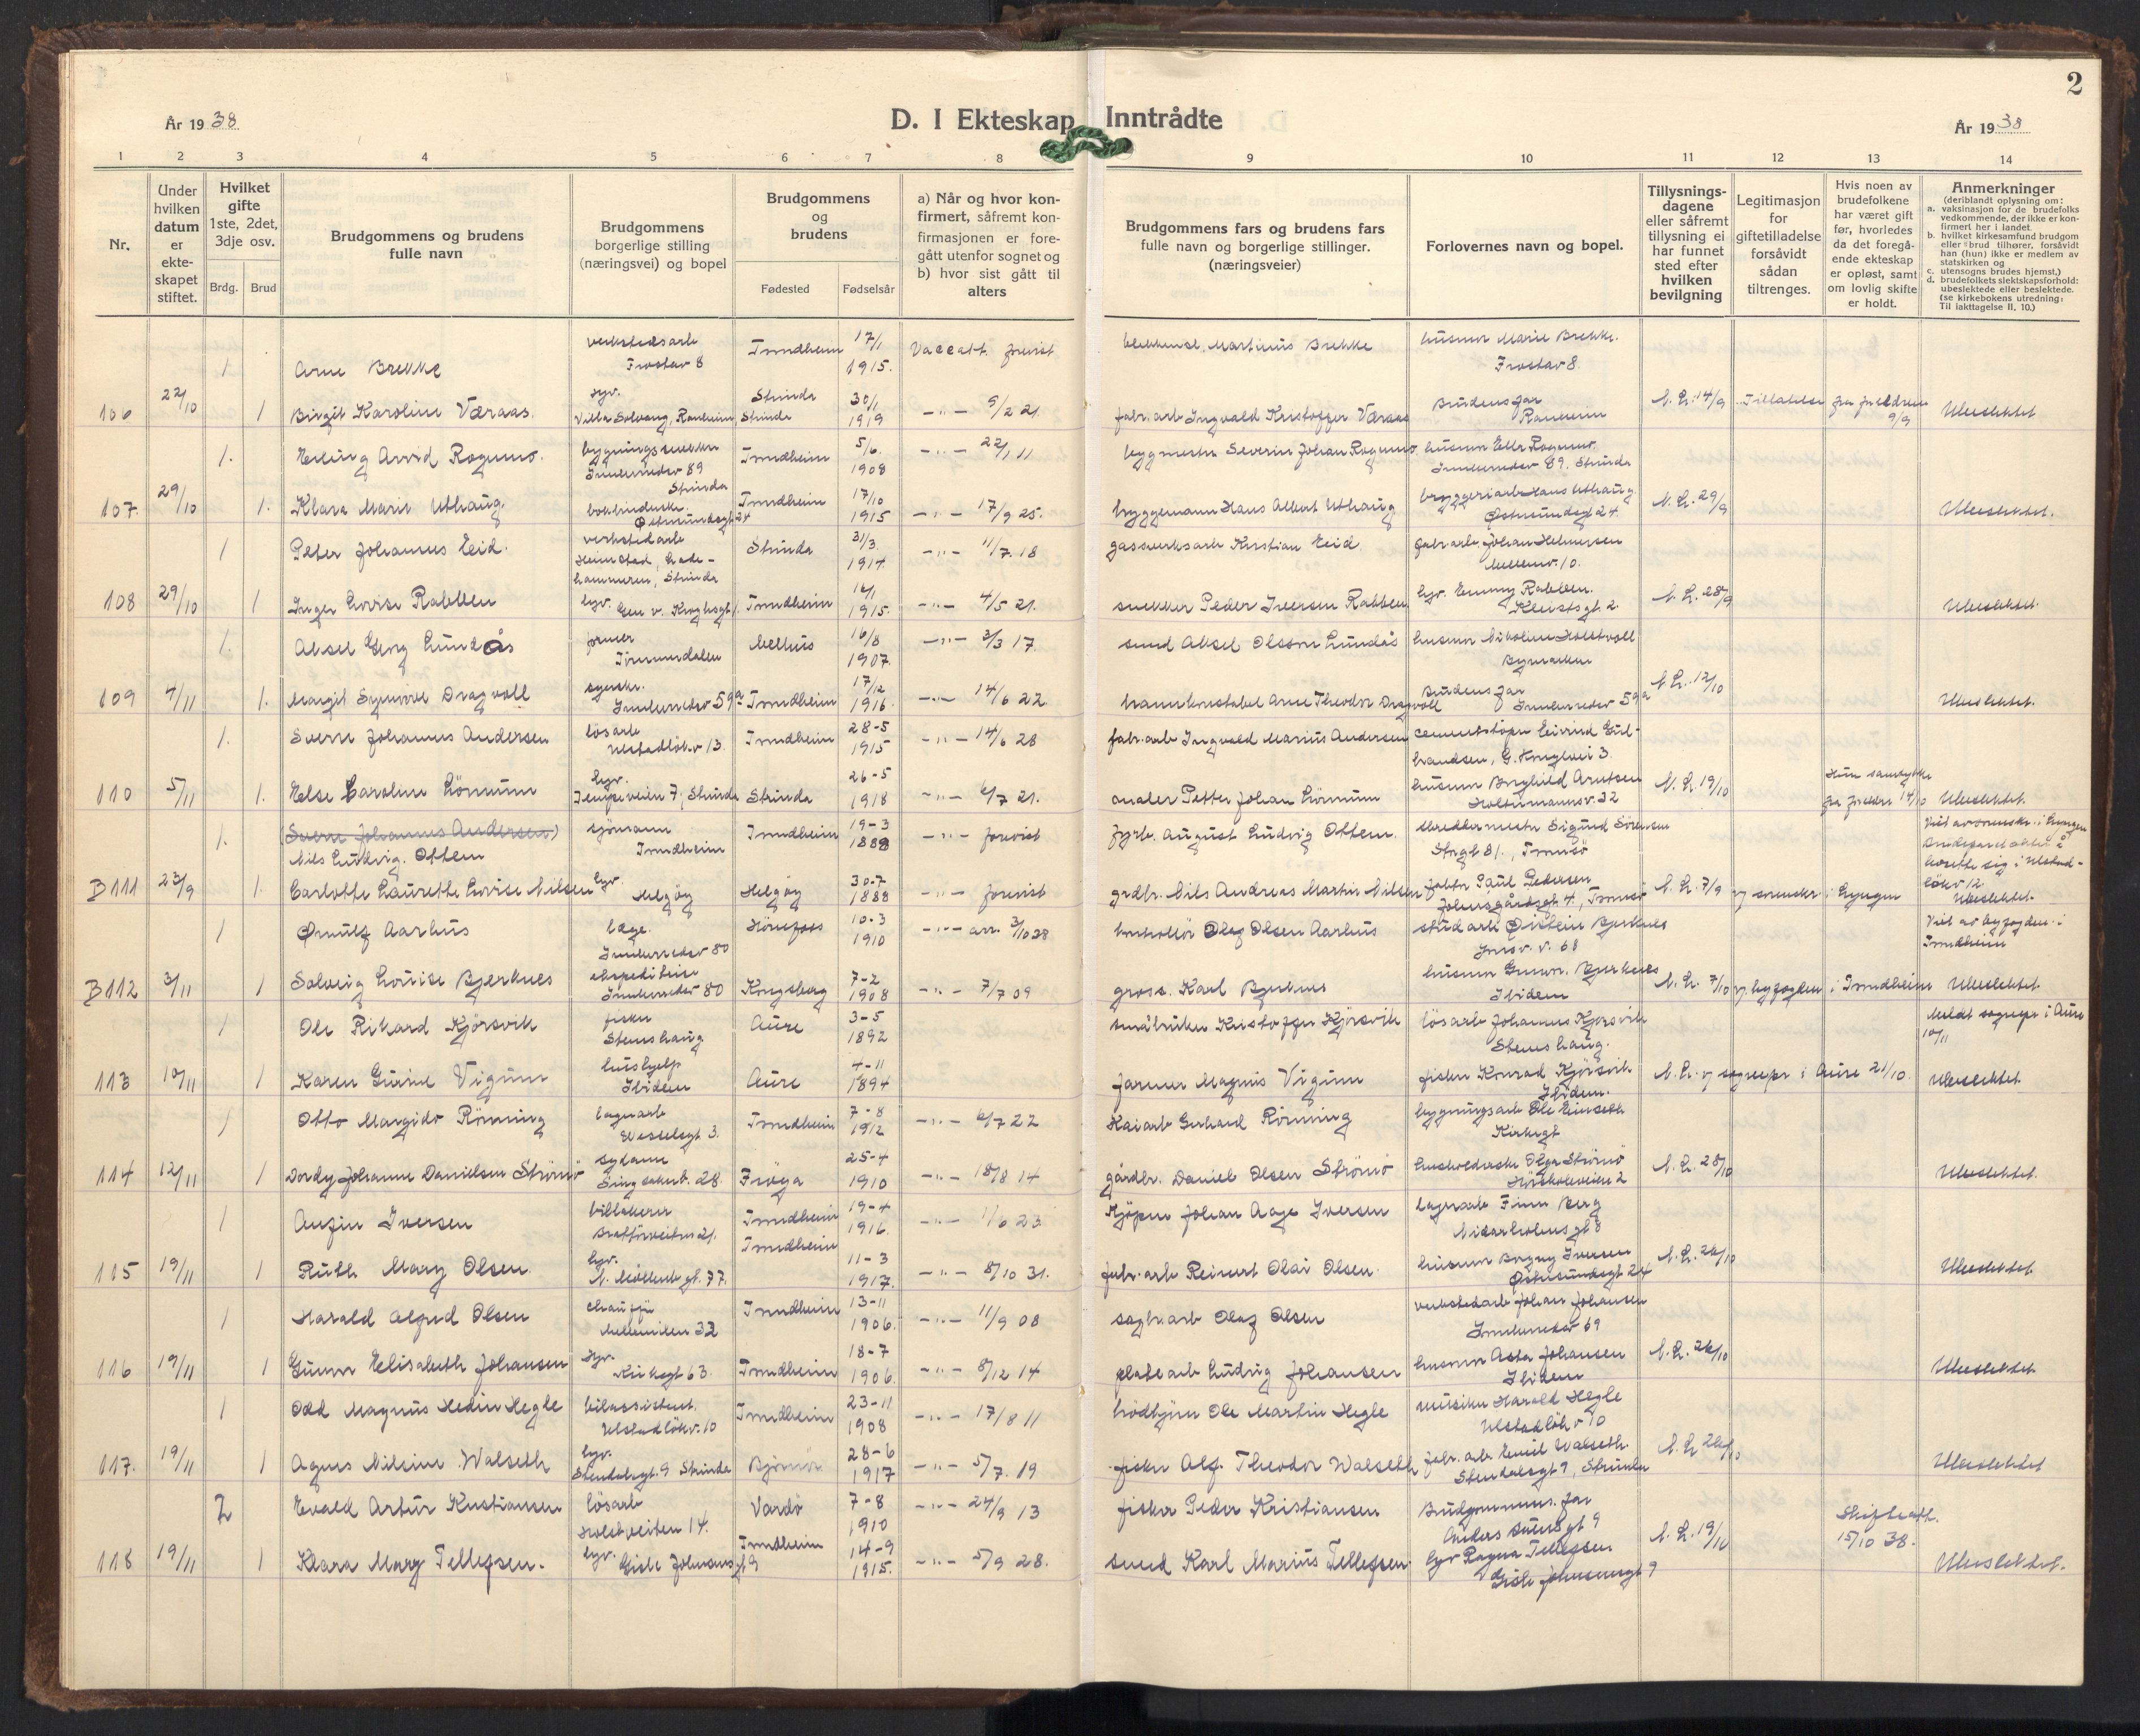 2
År 1938
D. I Ekteskap Inntrådte
År 1938
1 2 3 4 5 6 7 8 9 10 11 12 13 14
Nr.
Under hvilken datum er ekte-skapet stiftet.
Hvilket gifte 1ste, 2det, 3dje osv.
Brdg. Brud
Brudgommens og brudens fulle navn
Brudgommens borgerlige stilling (næringsvei) og bopel
Brudgommens og brudens
Fødested Fødselsår
a) Når og hvor kon-firmert, såfremt kon-firmasjonen er fore-gått utenfor sognet og b) hvor sist gått til alters
Brudgommens fars og brudens fars fulle navn og borgerlige stillinger. (næringsveier)
Forlovernes navn og bopel.
Tillysnings-dagene eller såfremt tillysning ei har funnet sted efter hvilken bevilgning
Legitimasjon for giftetilladelse forsåvidt sådan tiltrenges.
Hvis noen av brudefolkene har været gift før, hvorledes da det foregå-ende ekteskap er opløst, samt om lovlig skifte er holdt.
Anmerkninger
(deriblandt oplysning om:
a. vaksinasjon for de brudefolks vedkommende, der ikke er kon-firmert her i landet.
b. hvilket kirkesamfund brudgom eller brud tilhører, forsåvidt han (hun) ikke er medlem av statskirken og
c. utensogns brudes hjemst.)
d. brudefolkets slektskapsforhold: ubeslektede eller beslektede. (se kirkebokens utredning: Til iakttagelse II. 10.)
1 Arne Brekke verkstedsarb Frostav 8 Trondheim 17/1 1915. Vaccatt. forevist Martinus Brekke husmor Marie Brekke. Frostav 8.
106 22/10 1 Birgit Karoline Væraas. hyv. Villa Solvang, Ranheim, Strinda Strinda 30/1 1919 -"- 9/2 21. fabr. arb Ingvald Kristoffer Væraas Brudens far Ranheim N. L. 14/9 Tillatelse fra foreldrene 9/9 Ubeslektet
1. Erling Arvid Rognmo. bygningssnekker Innherredsv 89 Strinda Trondheim 5/6. 1908 -"- 22/1 11 bygmester Severin Johan Rognmo. husmor Ella Rognmo. Innherredsv 89. Strinda
107. 29/10 1. Klara Marie Uthaug. bokbinderske. Østersundsgt 24 Trondheim 17/10 1915 -"- 17/9 25. bryggemann Hans Albert Uthaug bryggeriarb Hans Uthaug. Østersundsgt 24. N. L. 29/9 Ubeslektet.
1 Peter Johannes Eid. verkstedarb Heimstad, Lade-hammeren, Strinda Strinda 31/3. 1914. -"- 11/7. 18 gassverksarb Kristian Eid. fabr arb. Johan Helmersen Mellomv. 10.
108 29/10 1 Inger Lovise Rabben hyv. Gen v. Kroghsgt 1. Trondheim 1915. -"- 4/5 21. snekker Peder Iversen Rabben. hyv. Emmy Rabben. Kleistsgt 2. N. L. 28/9 Ubeslektet.
1. Aksel Georg Lundås Melhus 16/8 1907. -"- 3/3 17. smed Aksel Olsson Lundås husmor Nikoline Holstvoll Bymarken
109 4/11 1. Margit Synnøve Dragvoll syerske. Innherredsv 59a Trondheim 17/12 1916. -"- 14/6 22. Arne Theodor Dragvoll Brudens far Innherredsv 59a N. L. 12/10 Ubeslektet.
1. Sverre Johannes Andersen løsarb Ulstadløkv 13. Trondheim 28-5 1915 -"- 14/6 28 fabr. arb Ingvald Marius Andersen cementstøper Eivind Gul-brandsen, G. Kroghvei 3.
110 5/11 1. Else Caroline Lönnum hyv. Tempeveien 7, Strinda Strinda 26-5 1918 -"- 4/7 21. maler Petter Johan Lönnum husmor Borghild Arntsen Holtermannsv. 32 N. L. 19/10 Hun samtykke fra foreldre 14/10 Ubeslektet.
1. (Sverre Johannes Andersen) Nils Ludvig. Ottem sjömann Trondheim Trondheim 19-3 1888 -"- forevist fyrb. August Ludvig Ottem. Skreddermester Sigurd Sörensen Storgt 81., Tromsö Viet av sorenskr. i Lyngen bosette sig i Ulstad-lökv 12
B111 23/9 1. Carlotte Laurethe Lovise Nilsen hyv. Helgöy Helgöy 30-7 1888 -"- forevist grdbr. Nils Andreas Martin Nilsen Paul Pedersen Tromsö N. L. 7/9 v/ sorenskr. i Lyngen Ubeslektet.
1 Ørnulf Aarhus læge. Innherredsv 80 Hönefoss 10-3 1910 -"- arr. 3/10 28 kontrollör Olaf Olsen Aarhus stud ark Øistein Bjerknes v. 68 Viet av byfogden i Trondheim
B112 3/11 1 Solveig Louise Bjerknes ekspeditrise Innherredsv 80 Kongsberg 7-2 1908 -"- 7/7 09 gross. Karl Bjerknes husmor Gunvor. Bjerknes Ibidem N. L. 7/10 v/ byfogden i Trondheim Ubeslektet.
1 Ole Rikard Kjörsvik fisker Stemshaug Aure 3-5 1892 småbruker Kristoffer Kjörsvik lösarb Johannes Kjörsvik Stemshaug. Meldt sognepr i Aure 10/11
113 10/11 1 Karen Gurine Vigum hushjelp Ibidem Aure 4-11 1894 farmer Magnus Vigum fisker Konrad Kjörsvik Ibidem. N. L. v/ sognepr i Aure 21/10. Ubeslektet.
1 Otto Margido Rönning lagerarb Wesselsgt 3. Trondheim 7-8 1912 -"- 4/7 22 Kaiarb Gerhard Rönning bygningsarb Ole Einseth Kirkegt
114 12/11 1 Dordy Johanne Danielsen Strömö sydame Singsakerb. 28. Fröya 25-4 1910 -"- 18/8 14 gårdbr. Daniel Olsen Strömö husholderske Olga Strömö N. L. 28/10 Ubeslektet.
1 Anfin Iversen billakerer Trondheim 19-4 1916. -"- 1/6 23 Kjöpm Johan Aage Iversen lagerarb Finn Berg Nidarholmsgt 8
115 19/11 1 Ruth Mary Olsen. hyv. N. Möllenb gt. 77. Trondheim 11-3 1917. -"- 8/10 31. fabr. arb Reinert Olai Olsen. husmor Iversen Østersundsgt 24 N. L. 26/10 Ubeslektet.
1 Harald Alfred Olsen chauffør Mellomilen 32 Trondheim 13-11 1906. -"- 11/9 08 sagbr. arb Olaf Olsen verkstedarb Johan Johansen Innherredsv 69
116 19/11 1 Gunvor Elisabeth Johansen Hyv. Kirkegt 63. Trondheim 18-7 1906. -"- 8/12 14 platearb Ludvig Johansen husmor Asta Johansen Ibidem N. L. 26/10 Ubeslektet.
1 Odd Magnus Hedin Hegle Ulstadlökv. 10 Trondheim 23-11 1908 -"- 17/8 11 Ole Martin Hegle musiker Harald Hegle Ulstadlökv 10
117. 19/11 1 Agnes Nilsine Walseth hyv. Stendalsgt. 9 Strinda Bjørnör 28-6 1917 -"- 5/7. 19 fisker Alf Theodor Walseth fabr. arb. Emil Walseth. Stendalsgt 9, Strinda N. L. 26/10 Ubeslektet.
2 Evald Artur Kristiansen lösarb Holstveiten 14. Vardö 7-8 1910 -"- 24/9 13 fisker Peder Kristiansen Brudgommens. far 9 Skifteatt. 15/10 38.
118 19/11 1 Klara Mary Tellefsen. hyv. Gisle Johnsons gt 9 Trondheim 14-9 1915. -"- 5/9 28. smed Karl Marius Tellefsen. hyv Ragna Tellefsen Gisle Johnsonsgt 9 N. L. 19/10 Ubeslektet.